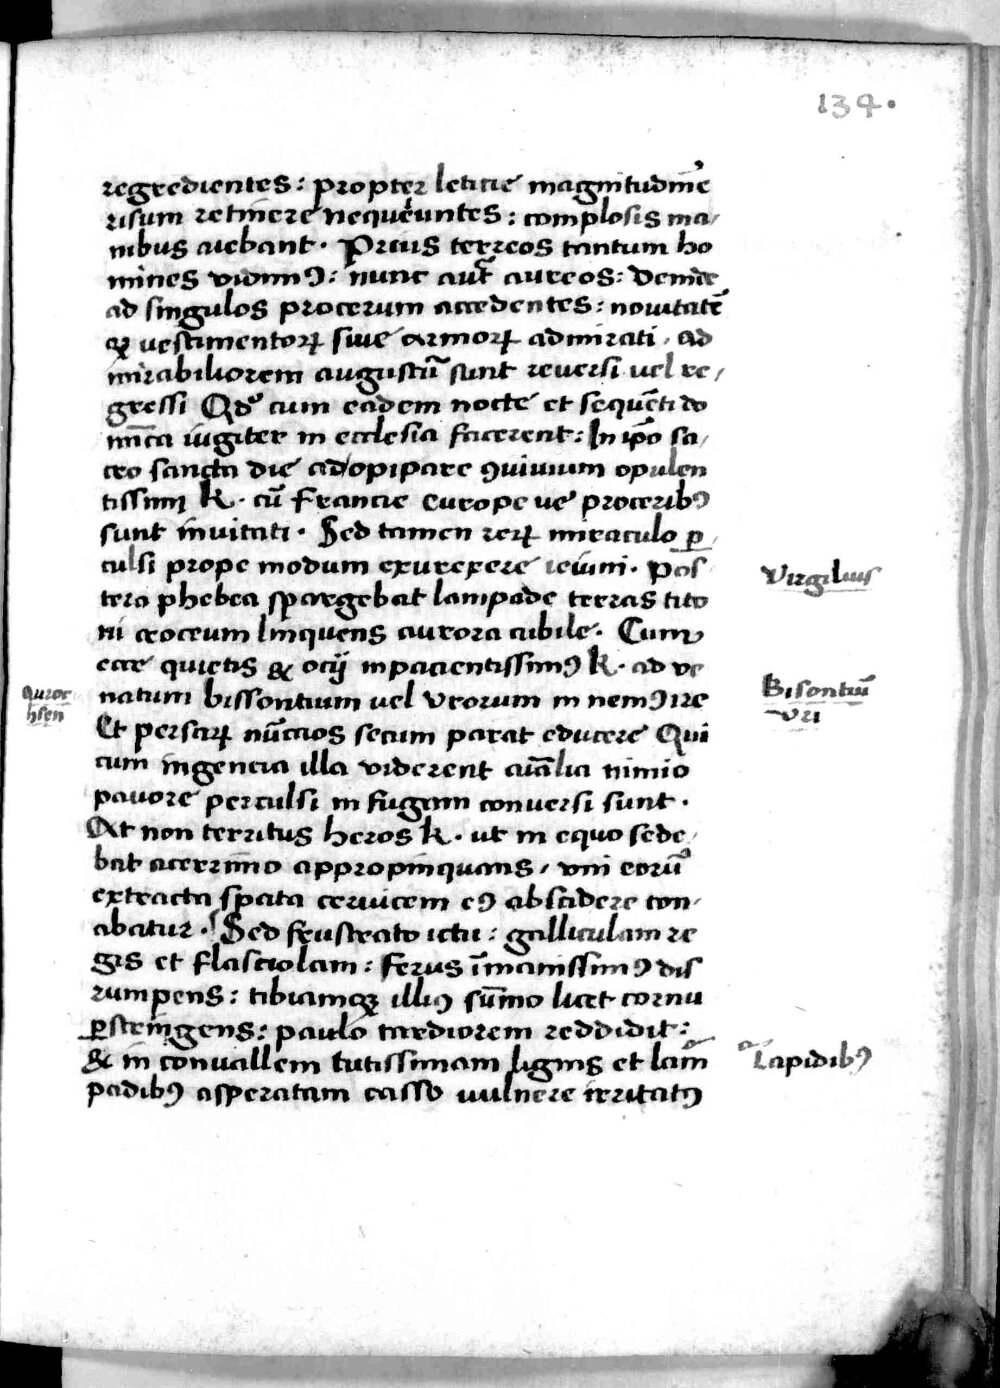 134.
regredientes: propter leticie magnitudinẽ
risum retinere nequeuntes: complosis ma/
nibus aiebant. Prius terreos tantum ho
mines vidimꝰ: nunc aut̃ aureos: Deinde
ad singulos procerum accedentes: nouitatẽ
qꝫ vestimentoꝝ siue armoꝝ admirati, ad
mirabiliorem augustũ sunt reuersi vel re/
gressi Qd̛ cum eadem nocte et sequẽti do
mĩca iugiter in ecclesia facerent: In ip̃o sa/
cro sancta die ad opipare ꝯuiuium opulen
tissimi K. cũ Francie Europe ve proceribꝰ
sunt inuitati. Sed tamen reꝝ miraculo ꝑ/
culsi prope modum exurexere ieiuni. Pos
tera phebea spargebat lampade terras tito
ni croceum linquens aurora cubile. Cum
ecce quietis & ocij inpacientissimꝰ K. ad ve
natum bissontium vel vrorum in nemꝰ ire
Et persaꝝ nũccios secum parat educere Qui
cum ingencia illa viderent aĩalia nimio
pauore perculsi in fugam conuersi sunt.
At non territus heros K. vt in equo sede/
bat acerrimo appropinquans, vni eorũ
extracta spata ceruicem eꝰ abscidere con/
abatur. Sed frustrato ictu: galliculam re
gis et flasciolam: Ferus ĩmanissimꝰ dis
rumpens: tibiamqꝫ illiꝰ sũmo licet cornu
ꝑstringens: paulo tardiorem reddidit:
& in conuallem tutissimam lignis et lam
padibꝰ asperatam casso vulnere irritatꝰ
Virgilius
Bisontiũ
vri
Auroc
hsen
Lapidibꝰ